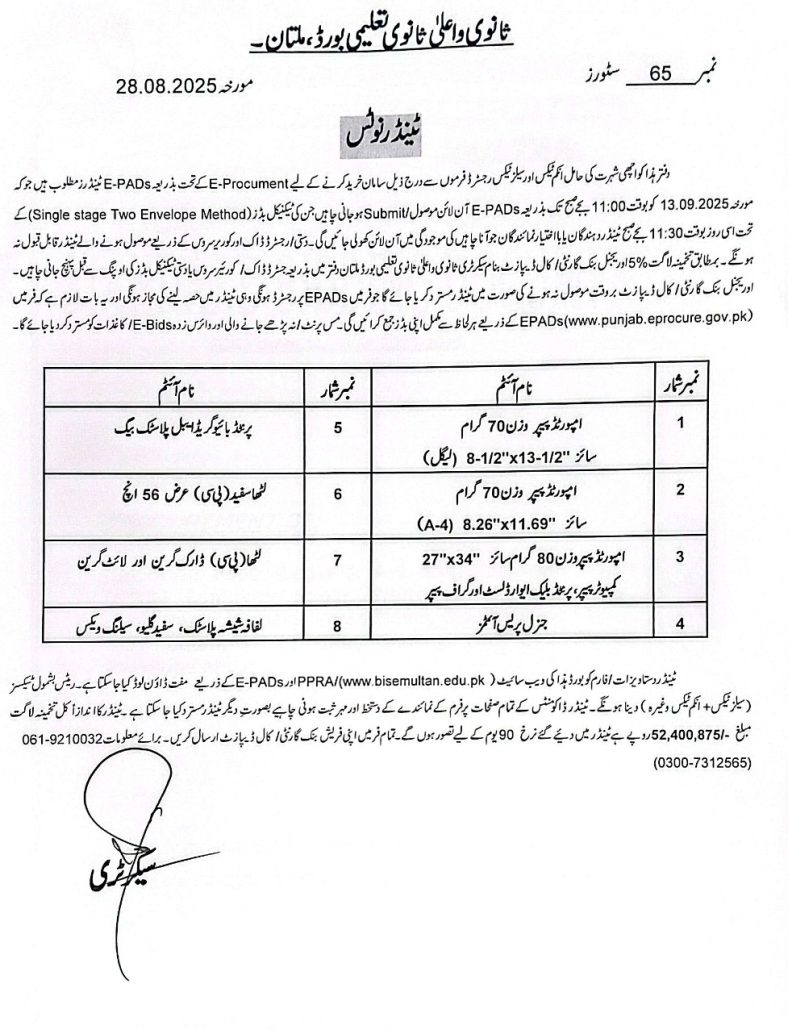 ثانوی و اعلیٰ ثانوی تعلیمی بورڈ، ملتان۔
نمبر 65 سٹورز
مورخہ 28.08.2025
ٹینڈر نوٹس
دفتر ہذا کو اچھی شہرت کی حامل انکم ٹیکس اور سیلز ٹیکس رجسٹرڈ فرموں سے درج ذیل سامان خرید کرنے کے لیے E-Procument کے تحت بذریعہ E-PADs ٹینڈرز مطلوب ہیں جو کہ
مورخہ 13.09.2025 کو بوقت 11:00 بجے صبح تک بذریعہ E-PADs آن لائن موصول/Submit ہو جانی چاہیں جن کی ٹیکنیکل بڈز (Single stage Two Envelope Method) کے
تحت اسی روز بوقت 11:30 بجے صبح ٹینڈر دہندگان یا با اختیار نمائندگان جو آنا چاہیں کی موجودگی میں آن لائن کھولی جائیں گی۔ دستی/رجسٹرڈ ڈاک اور کوریر سروس کے ذریعے موصول ہونے والے ٹینڈر قابل قبول نہ
ہونگے۔ بمطابق تخمینہ لاگت 5% اوریجنل بنک گارنٹی/کال ڈیپازٹ بنام سیکرٹری ثانوی و اعلیٰ ثانوی تعلیمی بورڈ ملتان دفتر میں بذریعہ رجسٹرڈ ڈاک/کورئیر سروس یا دستی ٹیکنیکل بڈز کی اوپننگ سے قبل پہنچ جانی چاہیں۔
اوریجنل بنک گارنٹی/کال ڈیپازٹ بروقت موصول نہ ہونے کی صورت میں ٹینڈر مسترد کر دیا جائے گا جو فرمیں EPADs پر رجسٹرڈ ہونگی وہی ٹینڈر میں حصہ لینے کی مجاز ہونگی اور یہ بات لازم ہے کہ فرمیں
EPADs(www.punjab.eprocure.gov.pk) کے ذریعے ہر لحاظ سے مکمل اپنی بڈز جمع کرائیں گی۔ مس پرنٹ/نہ پڑھے جانے والی اور وائرس زدہ E-Bids/کاغذات کو مسترد کر دیا جائے گا۔
نمبر شمار نام آئٹم نمبر شمار نام آئٹم
1 امپورٹڈ پیپر وزن 70 گرام 5 پرنٹڈ بائیو گریڈ ایبل پلاسٹک بیگ
سائز 8-1/2"x13-1/2" (لیگل)
2 امپورٹڈ پیپر وزن 70 گرام 6 لٹھا سفید (پی سی) عرض 56 انچ
سائز 8.26"x11.69" (A-4)
3 امپورٹڈ پیپر وزن 80 گرام سائز 27"x34" 7 لٹھا (پی سی) ڈارک گرین اور لائٹ گرین
کمپیوٹر پیپر، پرنٹڈ بلینک ایوارڈ لسٹ اور گراف پیپر
4 جنرل پریس آئٹمز 8 لفافہ شیشہ پلاسٹک، سفید گلیو، سیلنگ ویکس
ٹینڈر دستاویزات/فارم کو بورڈ ہذا کی ویب سائیٹ (www.bisemultan.edu.pk)/PPRA اور E-PADs کے ذریعے مفت ڈاؤن لوڈ کیا جا سکتا ہے۔ ریٹس بشمول ٹیکسز
(سیلز ٹیکس + انکم ٹیکس وغیرہ) دینا ہونگے۔ ٹینڈر ڈاکومنٹس کے تمام صفحات پر فرم کے نمائندے کے دستخط اور مہر ثبت ہونی چاہیے بصورت دیگر ٹینڈر مسترد کیا جا سکتا ہے۔ ٹینڈر کا اندازاً کل تخمینہ لاگت
مبلغ 52,400,875/- روپے ہے ٹینڈر میں دیئے گئے نرخ 90 یوم کے لیے تصور ہوں گے۔ تمام فرمیں اپنی فریش بنک گارنٹی/کال ڈیپازٹ ارسال کریں۔ برائے معلومات 061-9210032
(0300-7312565)
سیکرٹری